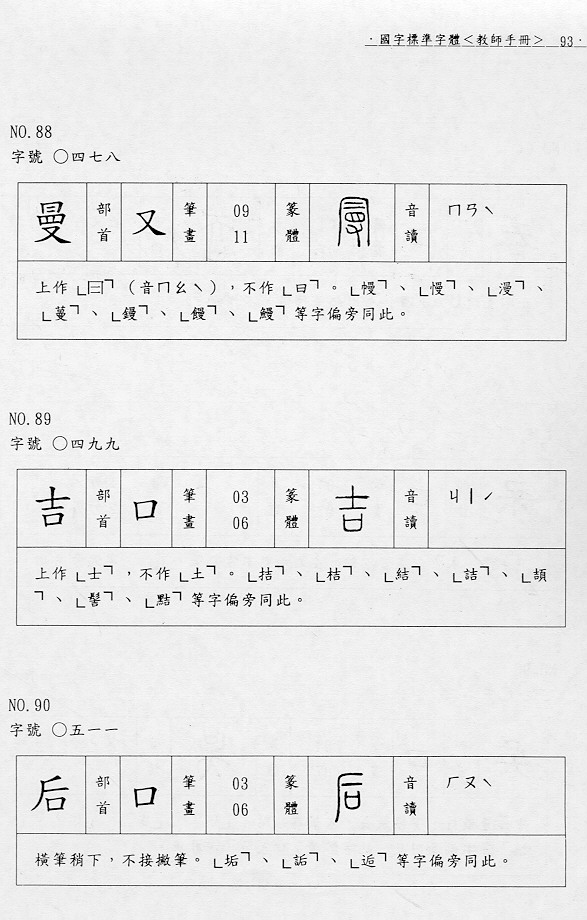 ·國字標準字體＜教師手冊＞ 93·
NO.88
字號 ○四七八
曼 部首 又 筆畫 09 11 篆體 曼 音讀 ㄇㄢˋ
上作「曰」（音ㄇㄠˋ），不作「曰」。「幔」、「慢」、「漫」、
「蔓」、「鏝」、「饅」、「鰻」等字偏旁同此。
NO.89
字號 ○四九九
吉 部首 口 筆畫 03 06 篆體 吉 音讀 ㄐㄧˊ
上作「士」，不作「土」。「拮」、「桔」、「結」、「詰」、「頡
」、「髻」、「黠」等字偏旁同此。
NO.90
字號 ○五一一
后 部首 口 筆畫 03 06 篆體 后 音讀 ㄏㄡˋ
橫筆稍下，不接撇筆。「垢」、「詬」、「逅」等字偏旁同此。